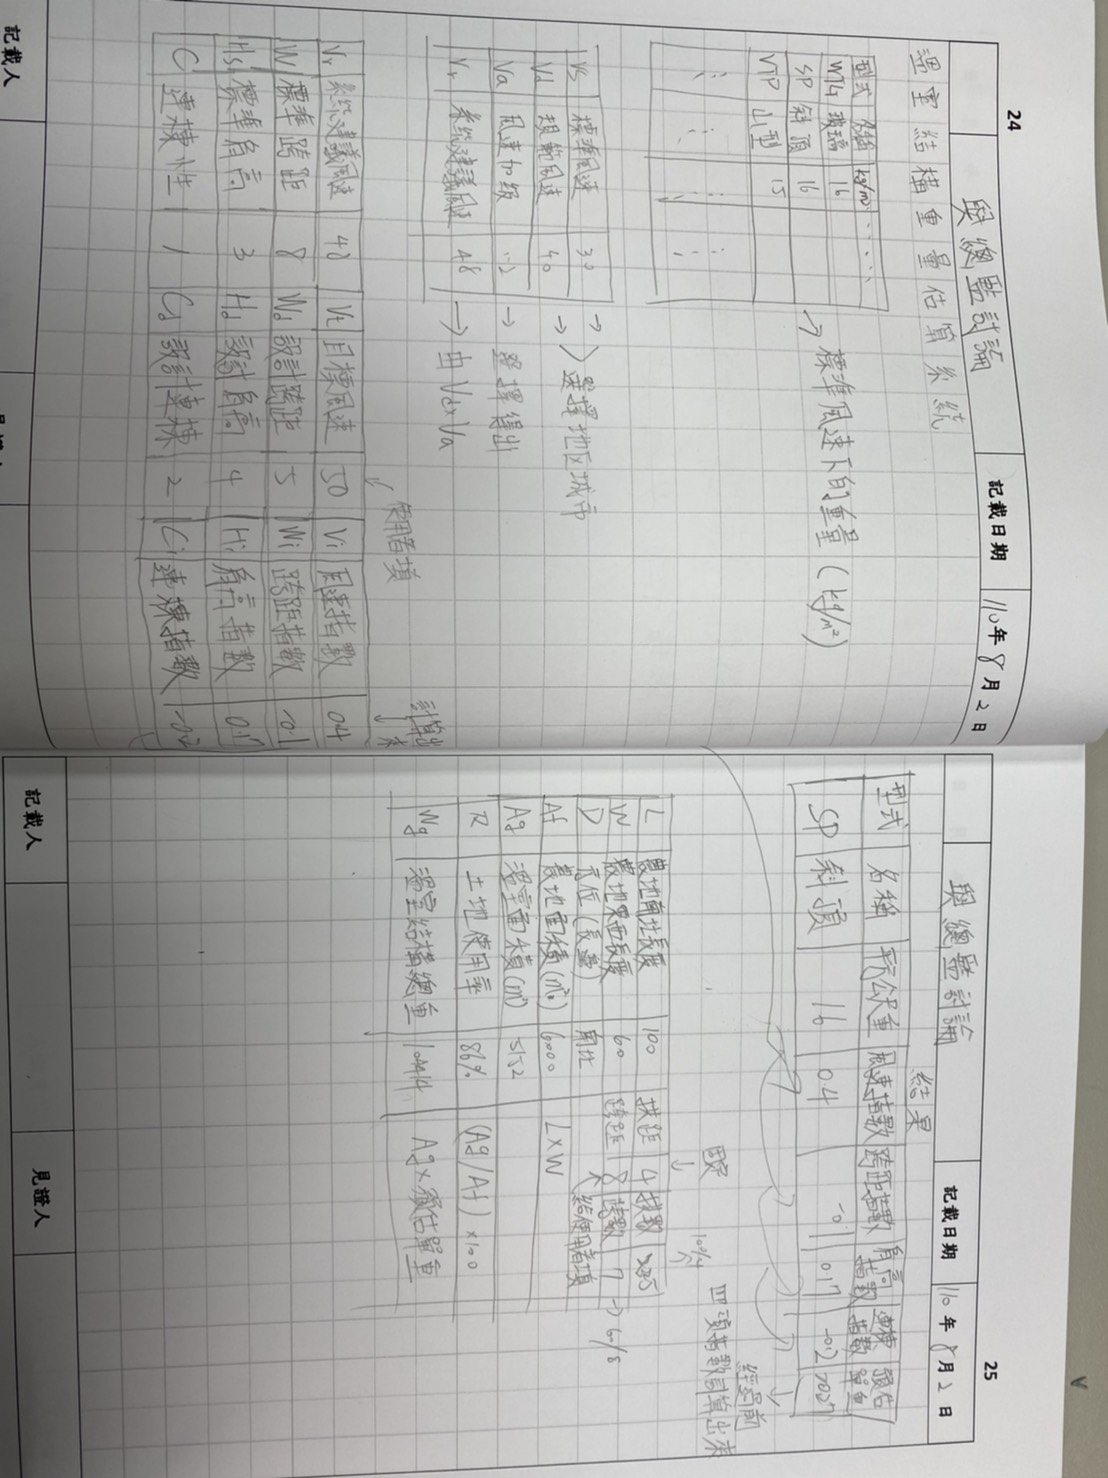 24
與總監討論
記載日期
110年8月2日
溫室結構重量估算系統
型式 名稱 kg/m² ....
WTG 玻璃 16
SP 斜頂 16
VTP 山型 15
→ 標準風速下的重量 (kg/m²)
Vs 標準風速 30 →
Vd 規範風速 40 → 選擇地区城市
Va 風速加級 1.2 → 選擇得出
Vr 系統建議風速 48 → 由 Vd×Va
使用者填
計算出來
Vr 系統建議風速 48 Vt 目標風速 50 Vi 風速指數 0.4
W 標準跨距 8 Wd 設計跨距 5 Wi 跨距指數 -0.1
Hs 標準肩高 3 Hd 設計肩高 4 Hi 肩高指數 0.17
C 連棟性 1 Cd 設計連棟 2 Ci 連棟指數 -0.2
記載人
25
與總監討論
記載日期
110年8月2日
結果
型式 名稱 平方公尺重 風速指數 跨距指數 肩高指數 連棟指數 預估單重
SP 斜頂 16 0.4 -0.1 0.17 -0.2
經前
四項指數計算出來
L 農地南北長度 100 拱距 4 拱數
W 農地東西長度 60 跨距 8 跨數 7
D 方位(長邊) 南北 給使用者填
Af 農地面積(m²) 6000 L×W
Ag 溫室面積(m²) 5152
R 土地使用率 86% (Ag/Af)×100
Wg 溫室結構總重 Ag×預估單重
記載人
見證人